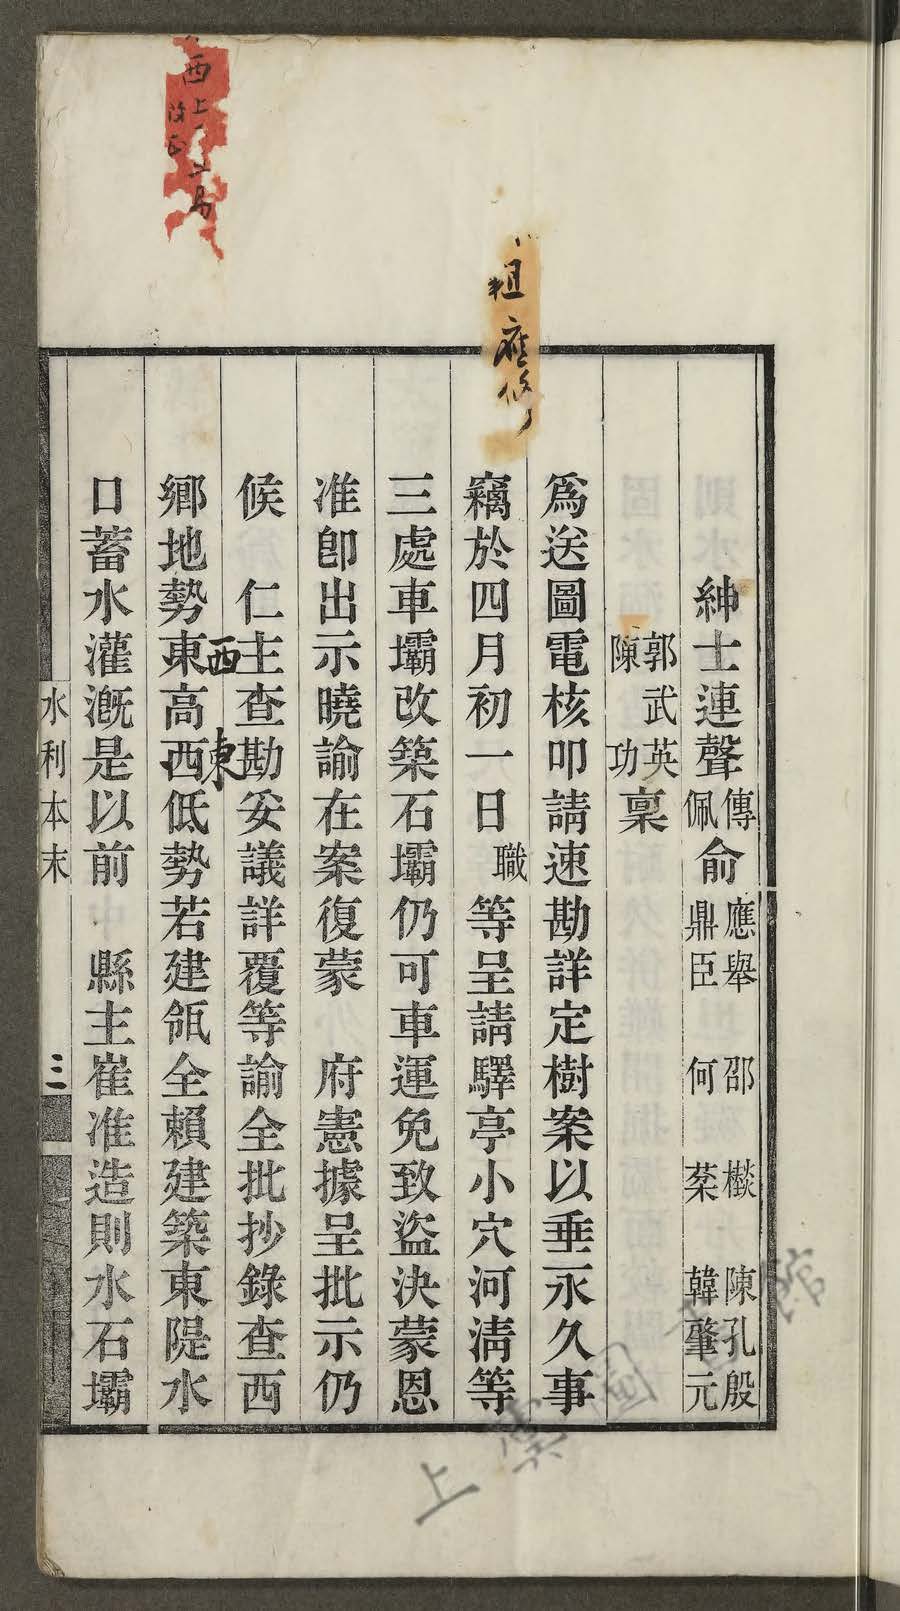 紳士連聲傳佩俞應舉鼎臣邵何棥棻陳韓孔肇殷元
郭陳武英功稟
爲送圖電核叩請速勘詳定樹案以垂永久事
竊於四月初一日職等呈請驛亭小穴河淸等
三處車壩改築石壩仍可車運免致盜決蒙恩
准卽出示曉諭在案復蒙府憲據呈批示仍
候仁主查勘妥議詳覆等諭全批抄錄查西
鄉地勢東高西低勢若建瓴全賴建築東隄水
西東
口蓄水灌漑是以前縣主崔准造則水石壩
水利本末
三
西上
上虞圖書館